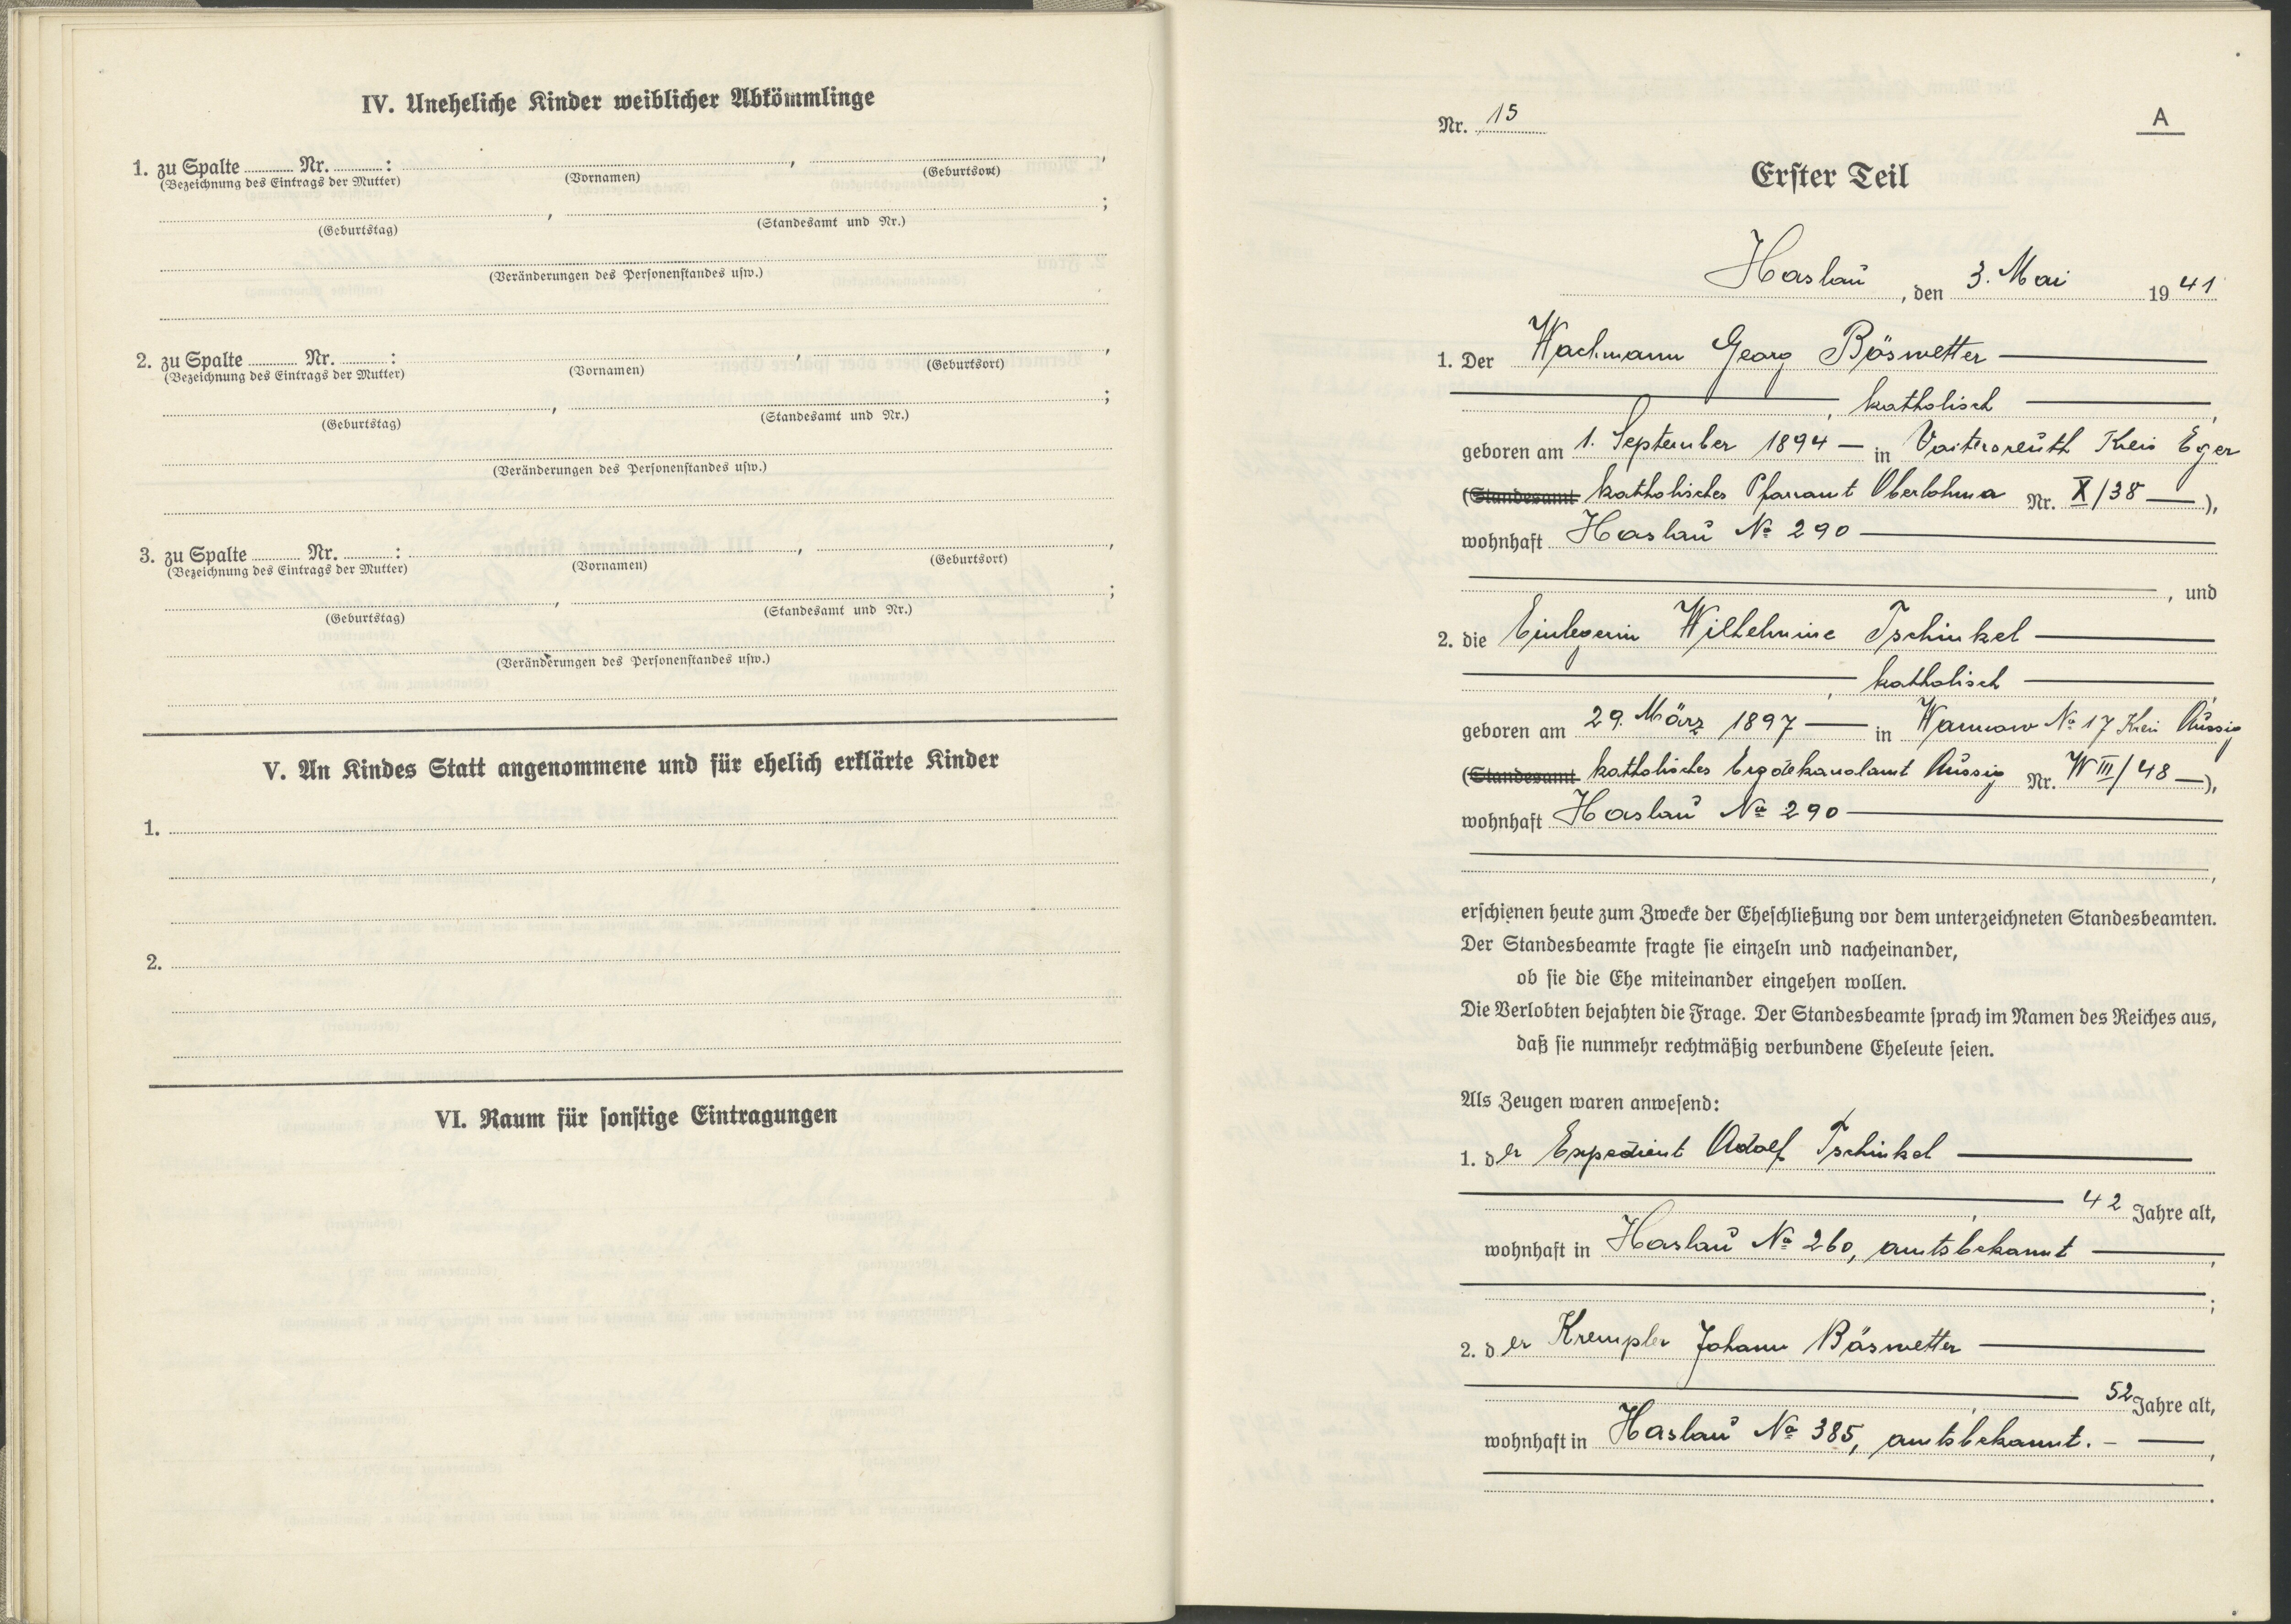 IV. Uneheliche Kinder weiblicher Abkömmlinge
1. zu Spalte Nr. : , ,
(Bezeichnung des Eintrags der Mutter) (Vornamen) (Geburtsort)
, ;
(Geburtstag) (Standesamt und Nr.)
(Veränderungen des Personenstandes usw.)
2. zu Spalte Nr. : , ,
(Bezeichnung des Eintrags der Mutter) (Vornamen) (Geburtsort)
, ;
(Geburtstag) (Standesamt und Nr.)
(Veränderungen des Personenstandes usw.)
3. zu Spalte Nr. : , ,
(Bezeichnung des Eintrags der Mutter) (Vornamen) (Geburtsort)
, ;
(Geburtstag) (Standesamt und Nr.)
(Veränderungen des Personenstandes usw.)
V. An Kindes Statt angenommene und für ehelich erklärte Kinder
1.
2.
VI. Raum für sonstige Eintragungen
Nr. 15 A
Erster Teil
Haslau, den 3. Mai 1941
1. Der Wachmann Georg Böswetter
, katholisch ,
geboren am 1. September 1894 — in Voitersreuth Kreis Eger
(Standesamt katholisches Pfarramt Oberlohma Nr. X/38 —),
wohnhaft Haslau № 290
, und
2. die Einlegerin Wilhelmine Tschinkel
, katholisch ,
geboren am 29. März 1897 — in Wannow № 17 Kreis Aussig
(Standesamt katholisches Erzdekanalamt Aussig Nr. W III/48 —),
wohnhaft Haslau № 290
,
erschienen heute zum Zwecke der Eheschließung vor dem unterzeichneten Standesbeamten.
Der Standesbeamte fragte sie einzeln und nacheinander,
ob sie die Ehe miteinander eingehen wollen.
Die Verlobten bejahten die Frage. Der Standesbeamte sprach im Namen des Reiches aus,
daß sie nunmehr rechtmäßig verbundene Eheleute seien.
Als Zeugen waren anwesend:
1. der Expedient Adolf Tschinkel
, 42 Jahre alt,
wohnhaft in Haslau № 260, amtsbekannt ,
;
2. der Krempler Johann Böswetter
, 52 Jahre alt,
wohnhaft in Haslau № 385, amtsbekannt. – ,
.